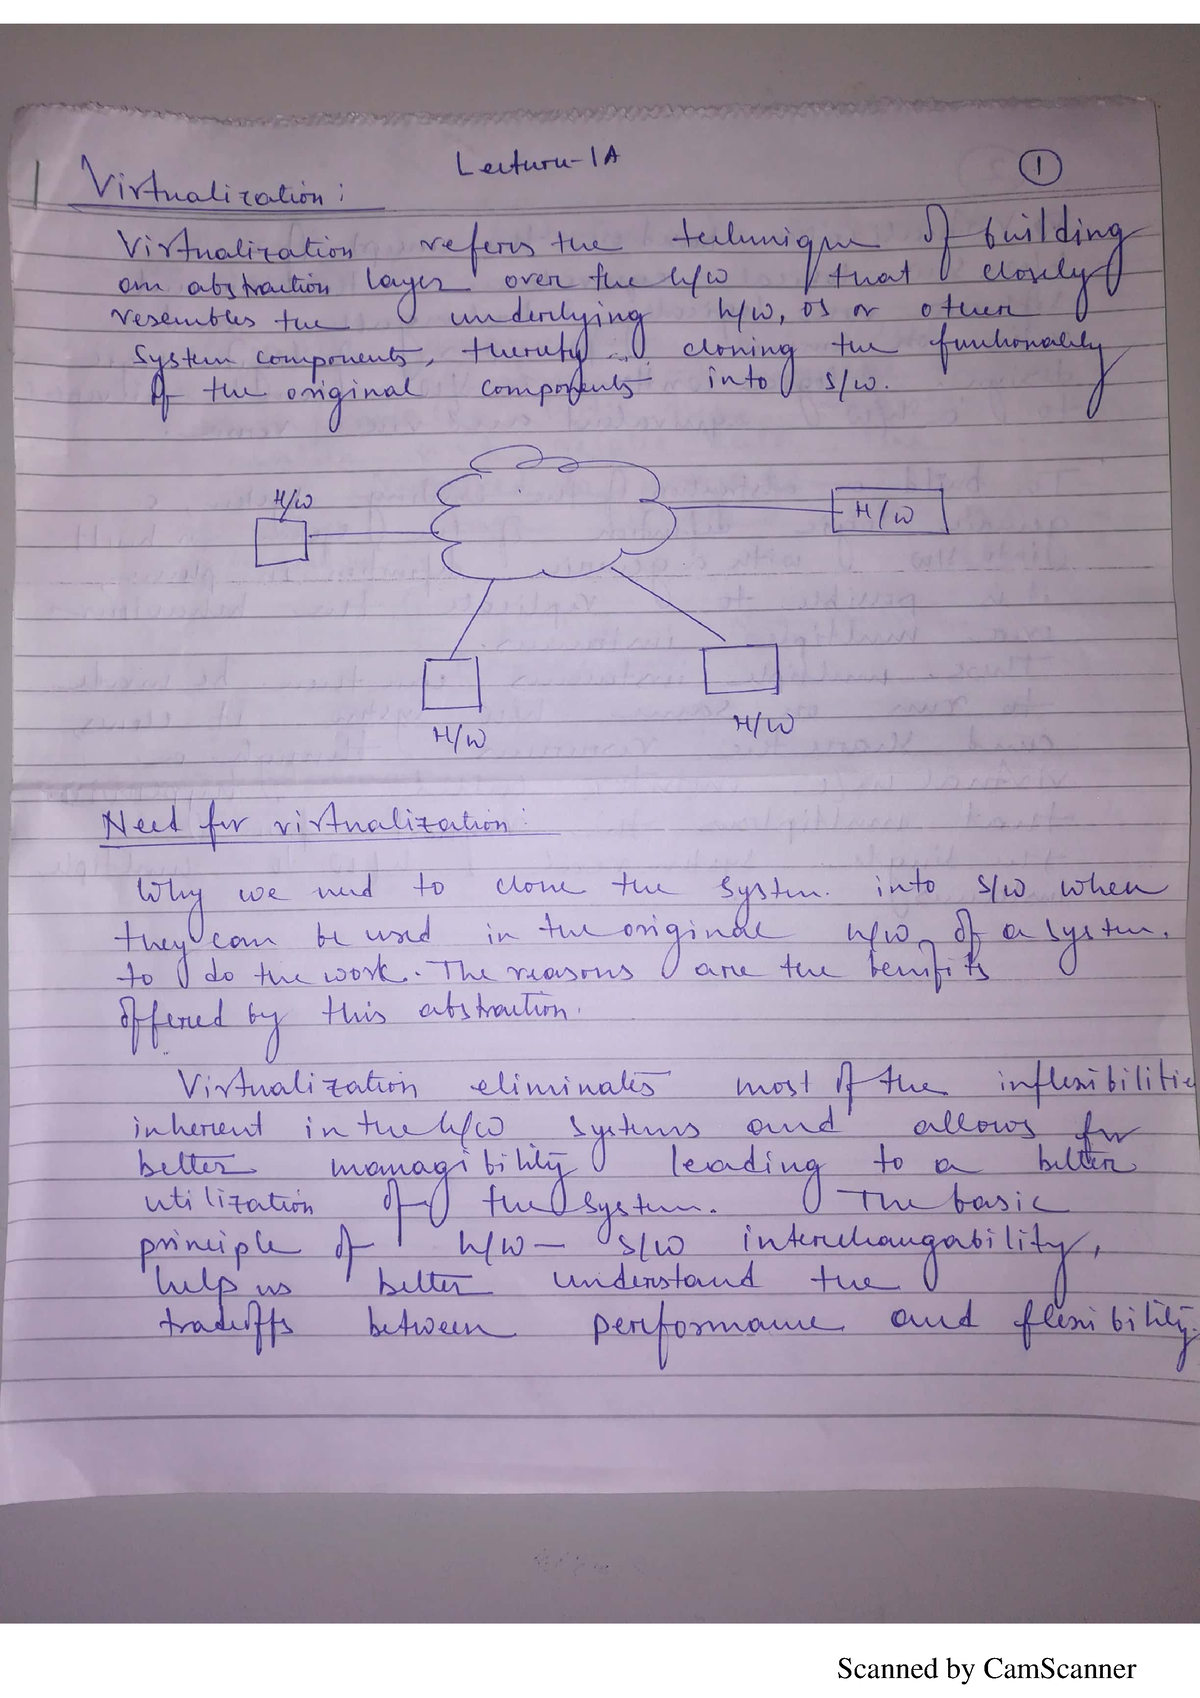 Lecture-1A
1
Virtualization:
Virtualization refers the technique of building
an abstraction layer over the h/w that closely
resembles the underlying h/w, OS or other
system components, thereby cloning the functionality
of the original components into s/w.
H/W
H/W
H/W
H/W
Need for virtualization:
Why we need to clone the system into s/w when
they can be used in the original h/w of a system.
to do the work. The reasons are the benifits
offered by this abstraction.
Virtualization eliminates most of the inflexibilitie
inherent in the h/w systems and allows for
better managibility leading to a better
utilization of the system. The basic
principle of h/w - s/w interchangability,
help us better understand the
tradeoffs between performance and flexibility.
Scanned by CamScanner